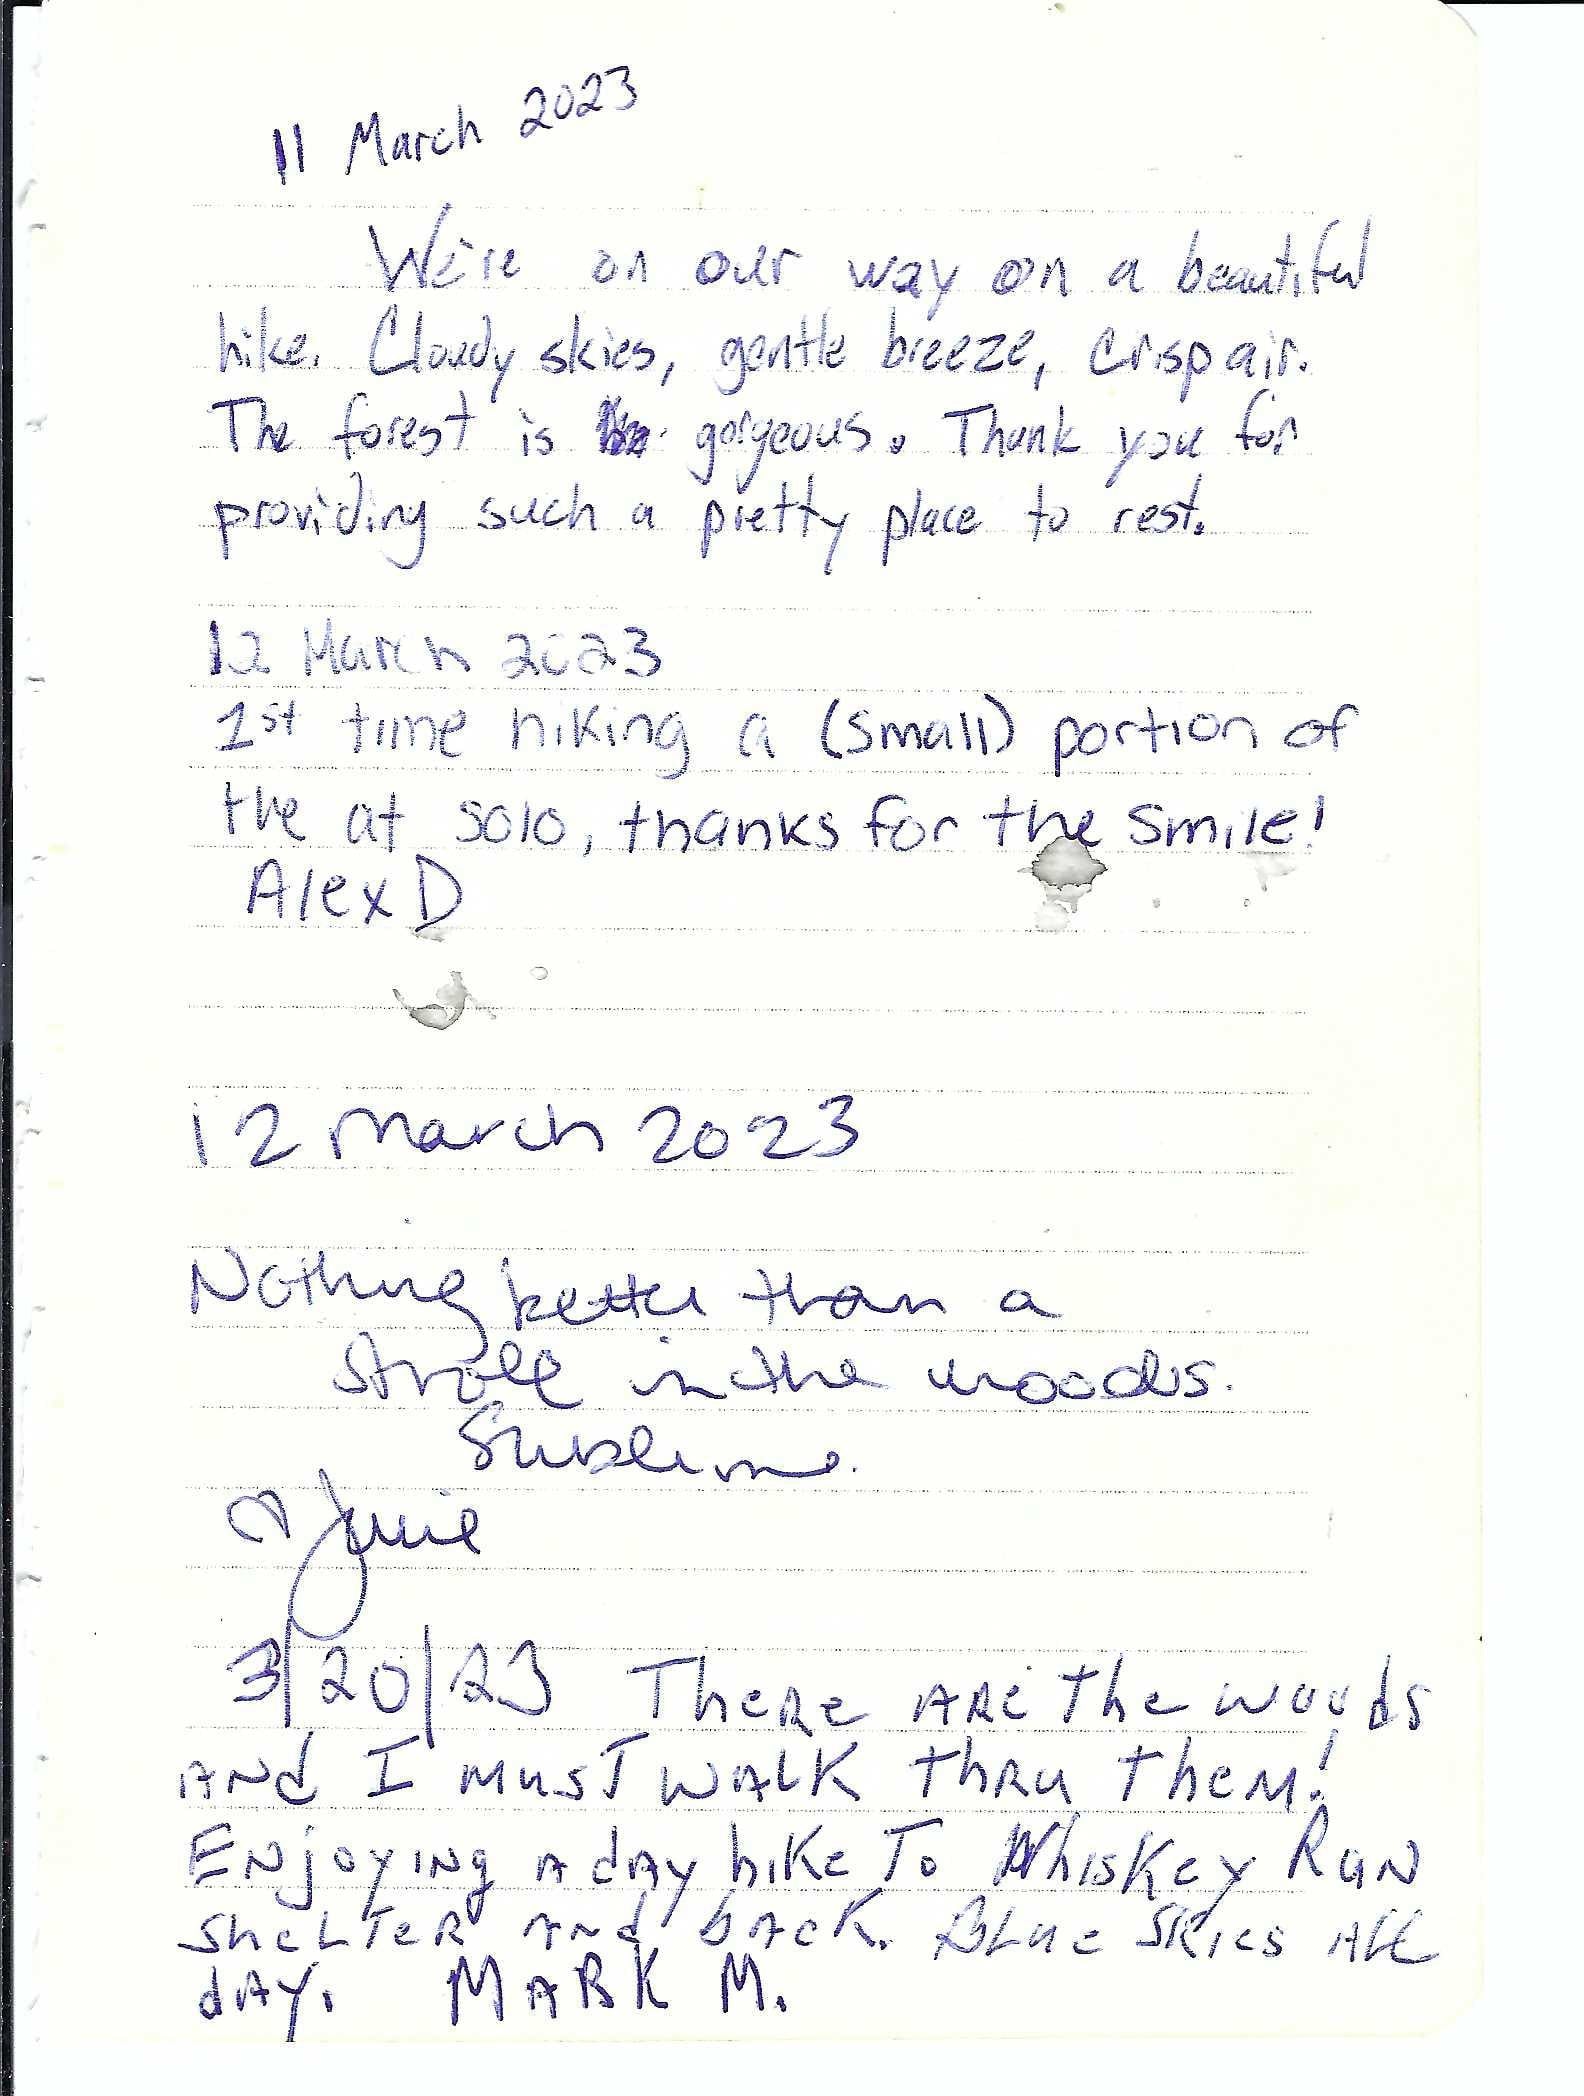 11 March 2023
We're on our way on a beautiful
hike. Cloudy skies, gentle breeze, crisp air.
The forest is gorgeous. Thank you for
providing such a pretty place to rest.
12 March 2023
1st time hiking a (small) portion of
the at solo, thanks for the smile!
Alex D
12 March 2023
Nothing better than a
stroll in the woods.
Sublime.
♡ Julie
3/20/23 There are the woods
and I must walk thru them!
Enjoying a day hike to Whiskey Run
shelter and back. Blue skies all
day. Mark M.